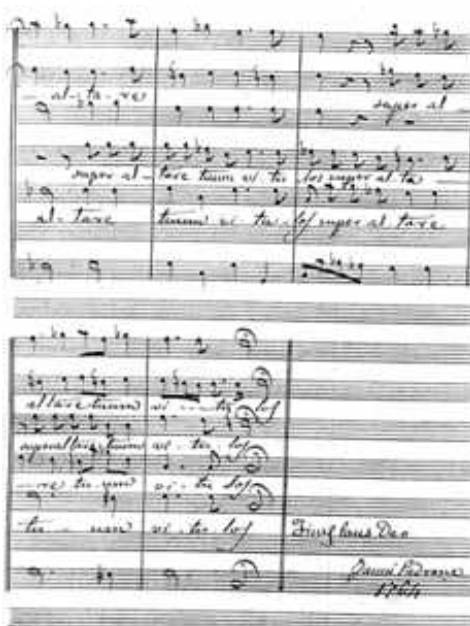 - al - ta - re super al -
super al - tare tuum vi - tu - los super al ta -
al - tare tuum vi - tu - los super al tare
altare tuum vi - - tu los
super altare tuum vi - tu - los
- re tuum vi - tu los
tu - - um vi - tu los Finis laus Deo
1764